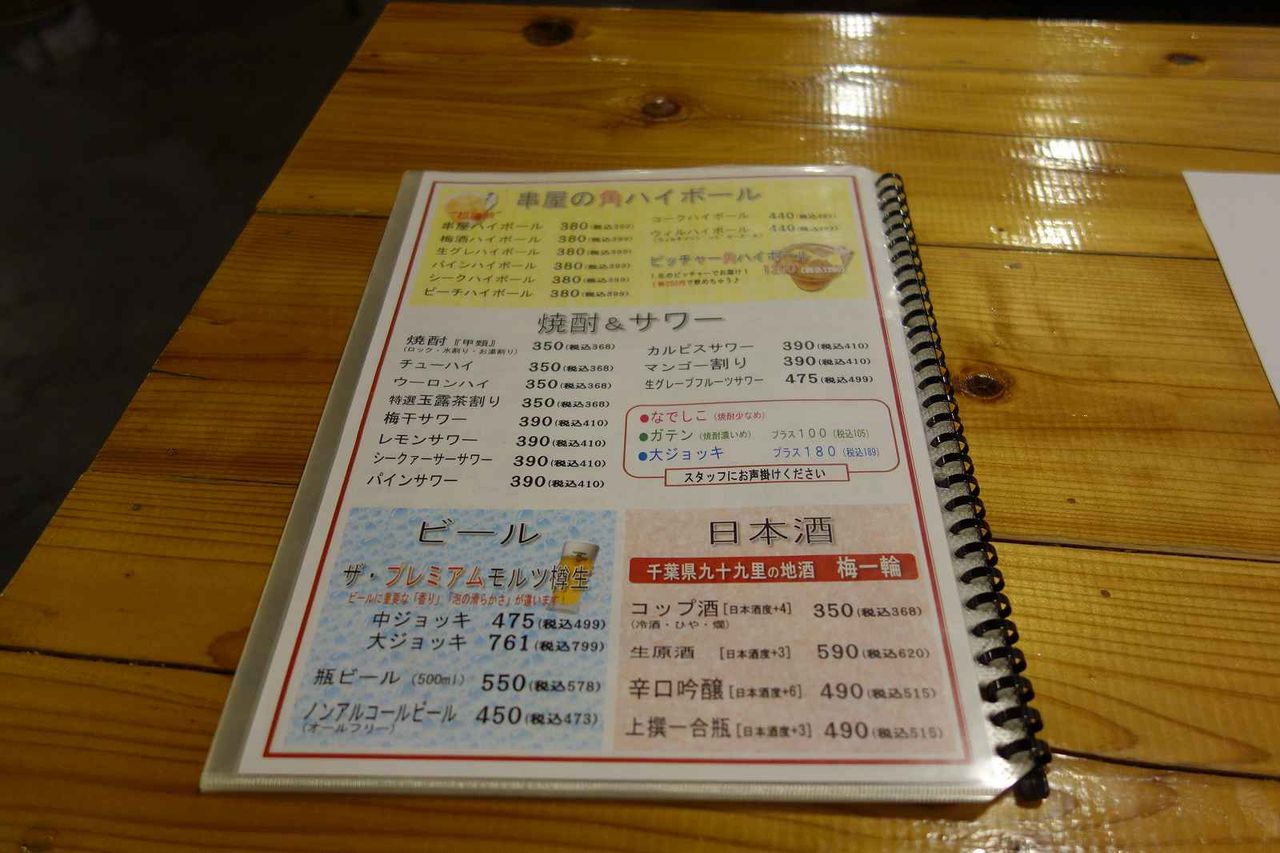 串屋の角ハイボール
串屋ハイボール 380(税込399)
梅酒ハイボール 380(税込399)
生グレハイボール 380(税込399)
パインハイボール 380(税込399)
シークハイボール 380(税込399)
ピーチハイボール 380(税込399)
コークハイボール 440
ウィルハイボール 440
ピッチャー角ハイボール
焼酎&サワー
焼酎『甲類』 350(税込368)
(ロック・水割り・お湯割り)
チューハイ 350(税込368)
ウーロンハイ 350(税込368)
特選玉露茶割り 350(税込368)
梅干サワー 390(税込410)
レモンサワー 390(税込410)
シークァーサーサワー 390(税込410)
パインサワー 390(税込410)
カルピスサワー 390(税込410)
マンゴー割り 390(税込410)
生グレープフルーツサワー 475(税込499)
●なでしこ(焼酎少なめ)
●ガテン(焼酎濃いめ) プラス100(税込105)
●大ジョッキ プラス180(税込189)
スタッフにお声掛けください
ビール
ザ・プレミアムモルツ樽生
ビールに重要な「香り」「泡の滑らかさ」が違います!
中ジョッキ 475(税込499)
大ジョッキ 761(税込799)
瓶ビール(500ml) 550(税込578)
ノンアルコールビール 450(税込473)
(オールフリー)
日本酒
千葉県九十九里の地酒 梅一輪
コップ酒[日本酒度+4] 350(税込368)
(冷酒・ひや・燗)
生原酒 [日本酒度+3] 590(税込620)
辛口吟醸[日本酒度+6] 490(税込515)
上撰一合瓶[日本酒度+3] 490(税込515)